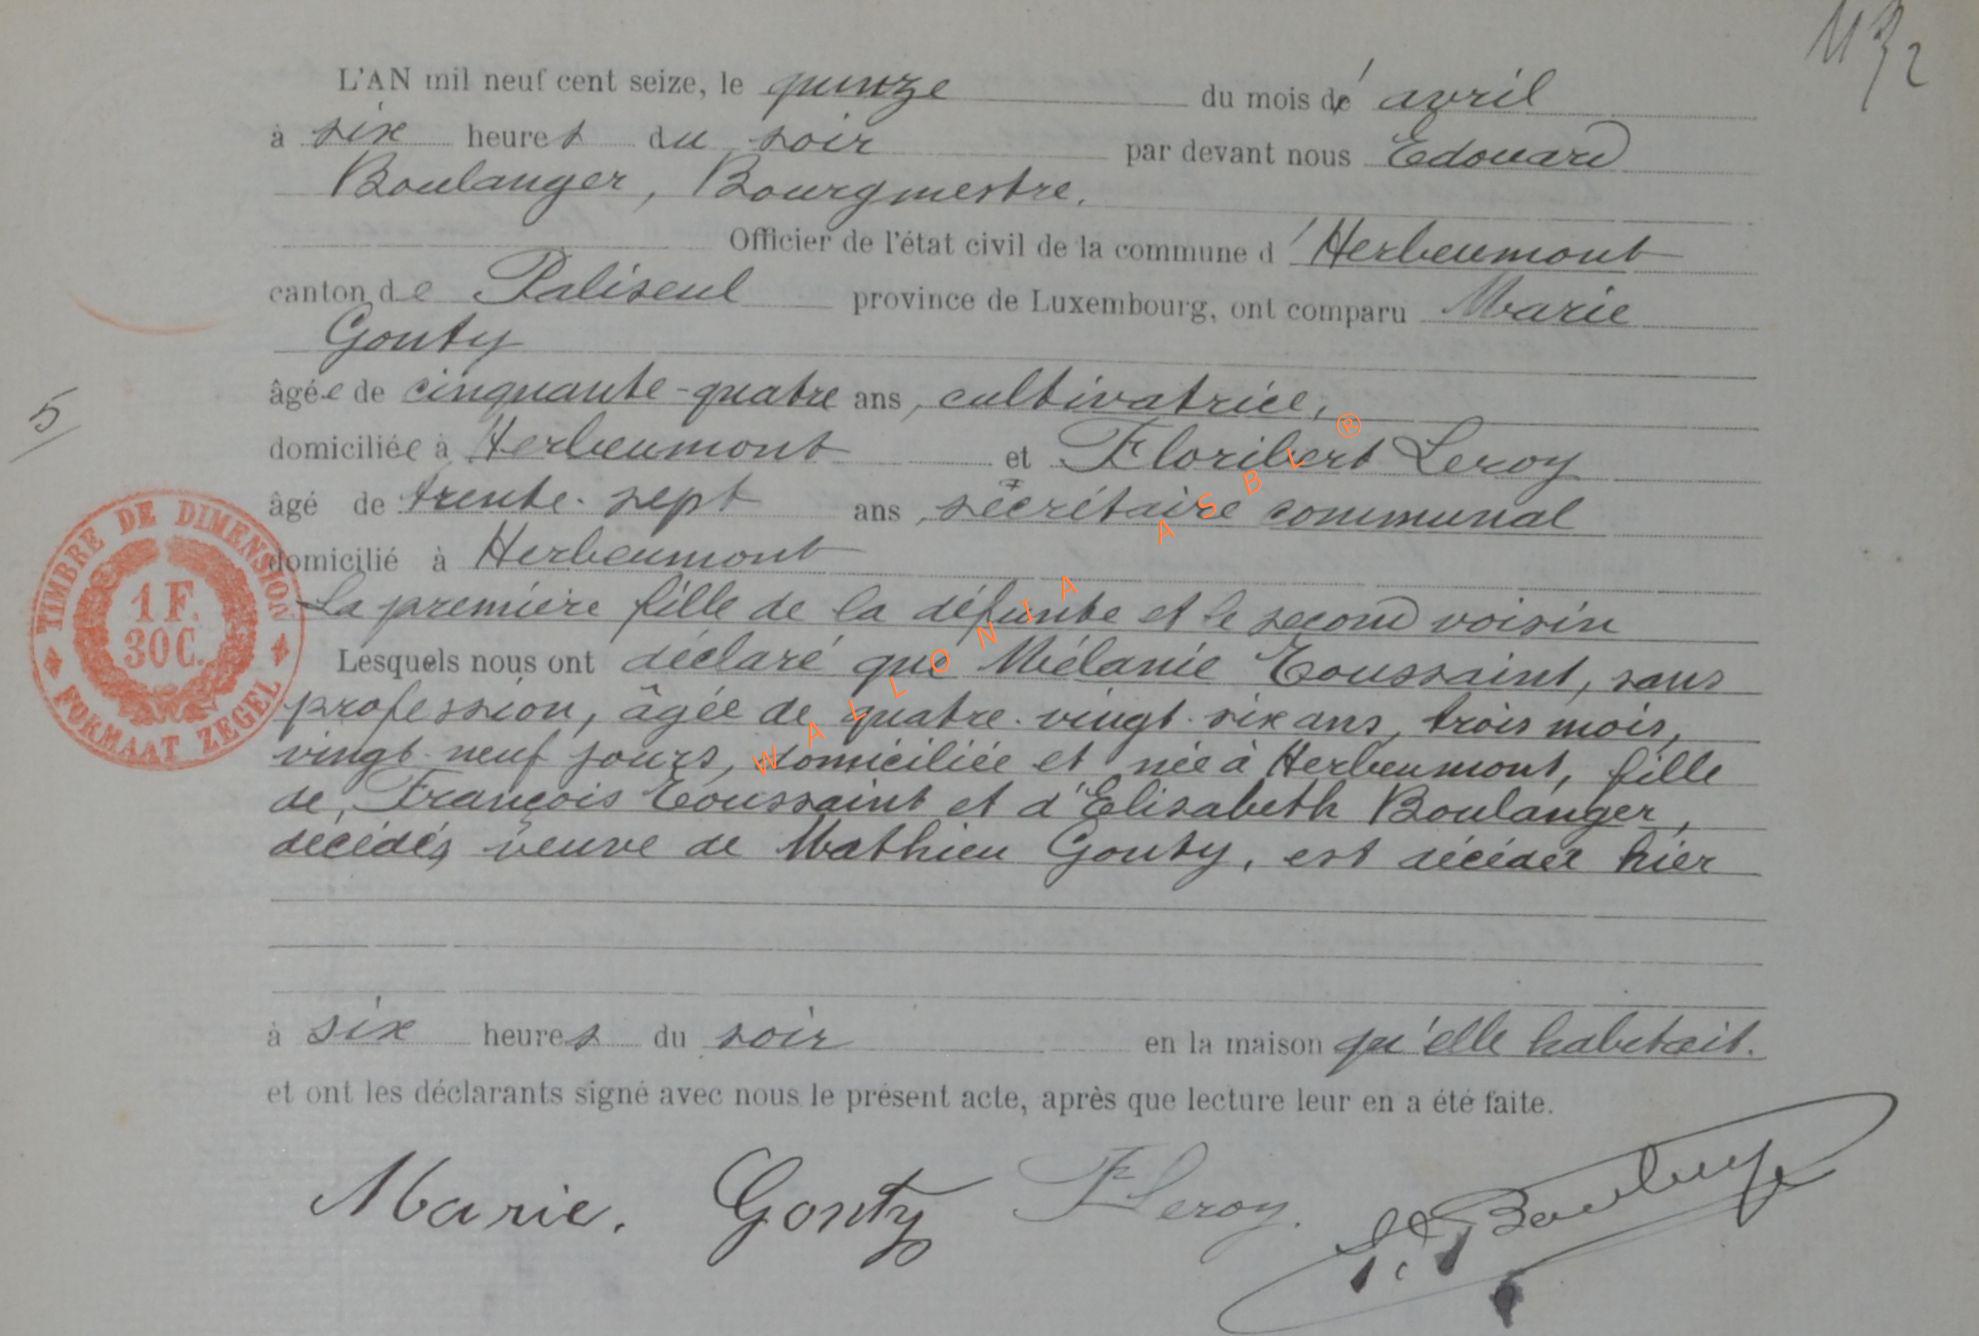 L'AN mil neuf cent seize, le quinze du mois dé avril
à six heures du soir par devant nous Edouard
Boulanger, Bourgmestre.
Officier de l'état civil de la commune d'Herbeumont
canton de Paliseul province de Luxembourg, ont comparu Marie
Gonty
âgée de cinquante-quatre ans, cultivatrice,
domiciliée à Herbeumont et Floribert Leroy
5
âgé de trente-sept ans, secrétaire communal
domicilié à Herbeumont
La première fille de la défunte et le second voisin
Lesquels nous ont déclaré que Mélanie Toussaint, sans
profession, âgée de quatre-vingt-six ans, trois mois,
vingt-neuf jours, domiciliée et née à Herbeumont, fille
de François Toussaint et d'Elisabeth Boulanger,
décédés, veuve de Mathieu Gonty, est décédée hier
à six heures du soir en la maison qu'elle habitait.
et ont les déclarants signé avec nous le présent acte, après que lecture leur en a été faite.
Marie. Gonty F Leroy.
TIMBRE DE DIMENSION
1 F.
30 C.
FORMAAT ZEGEL
WALLONIA ASBL ®